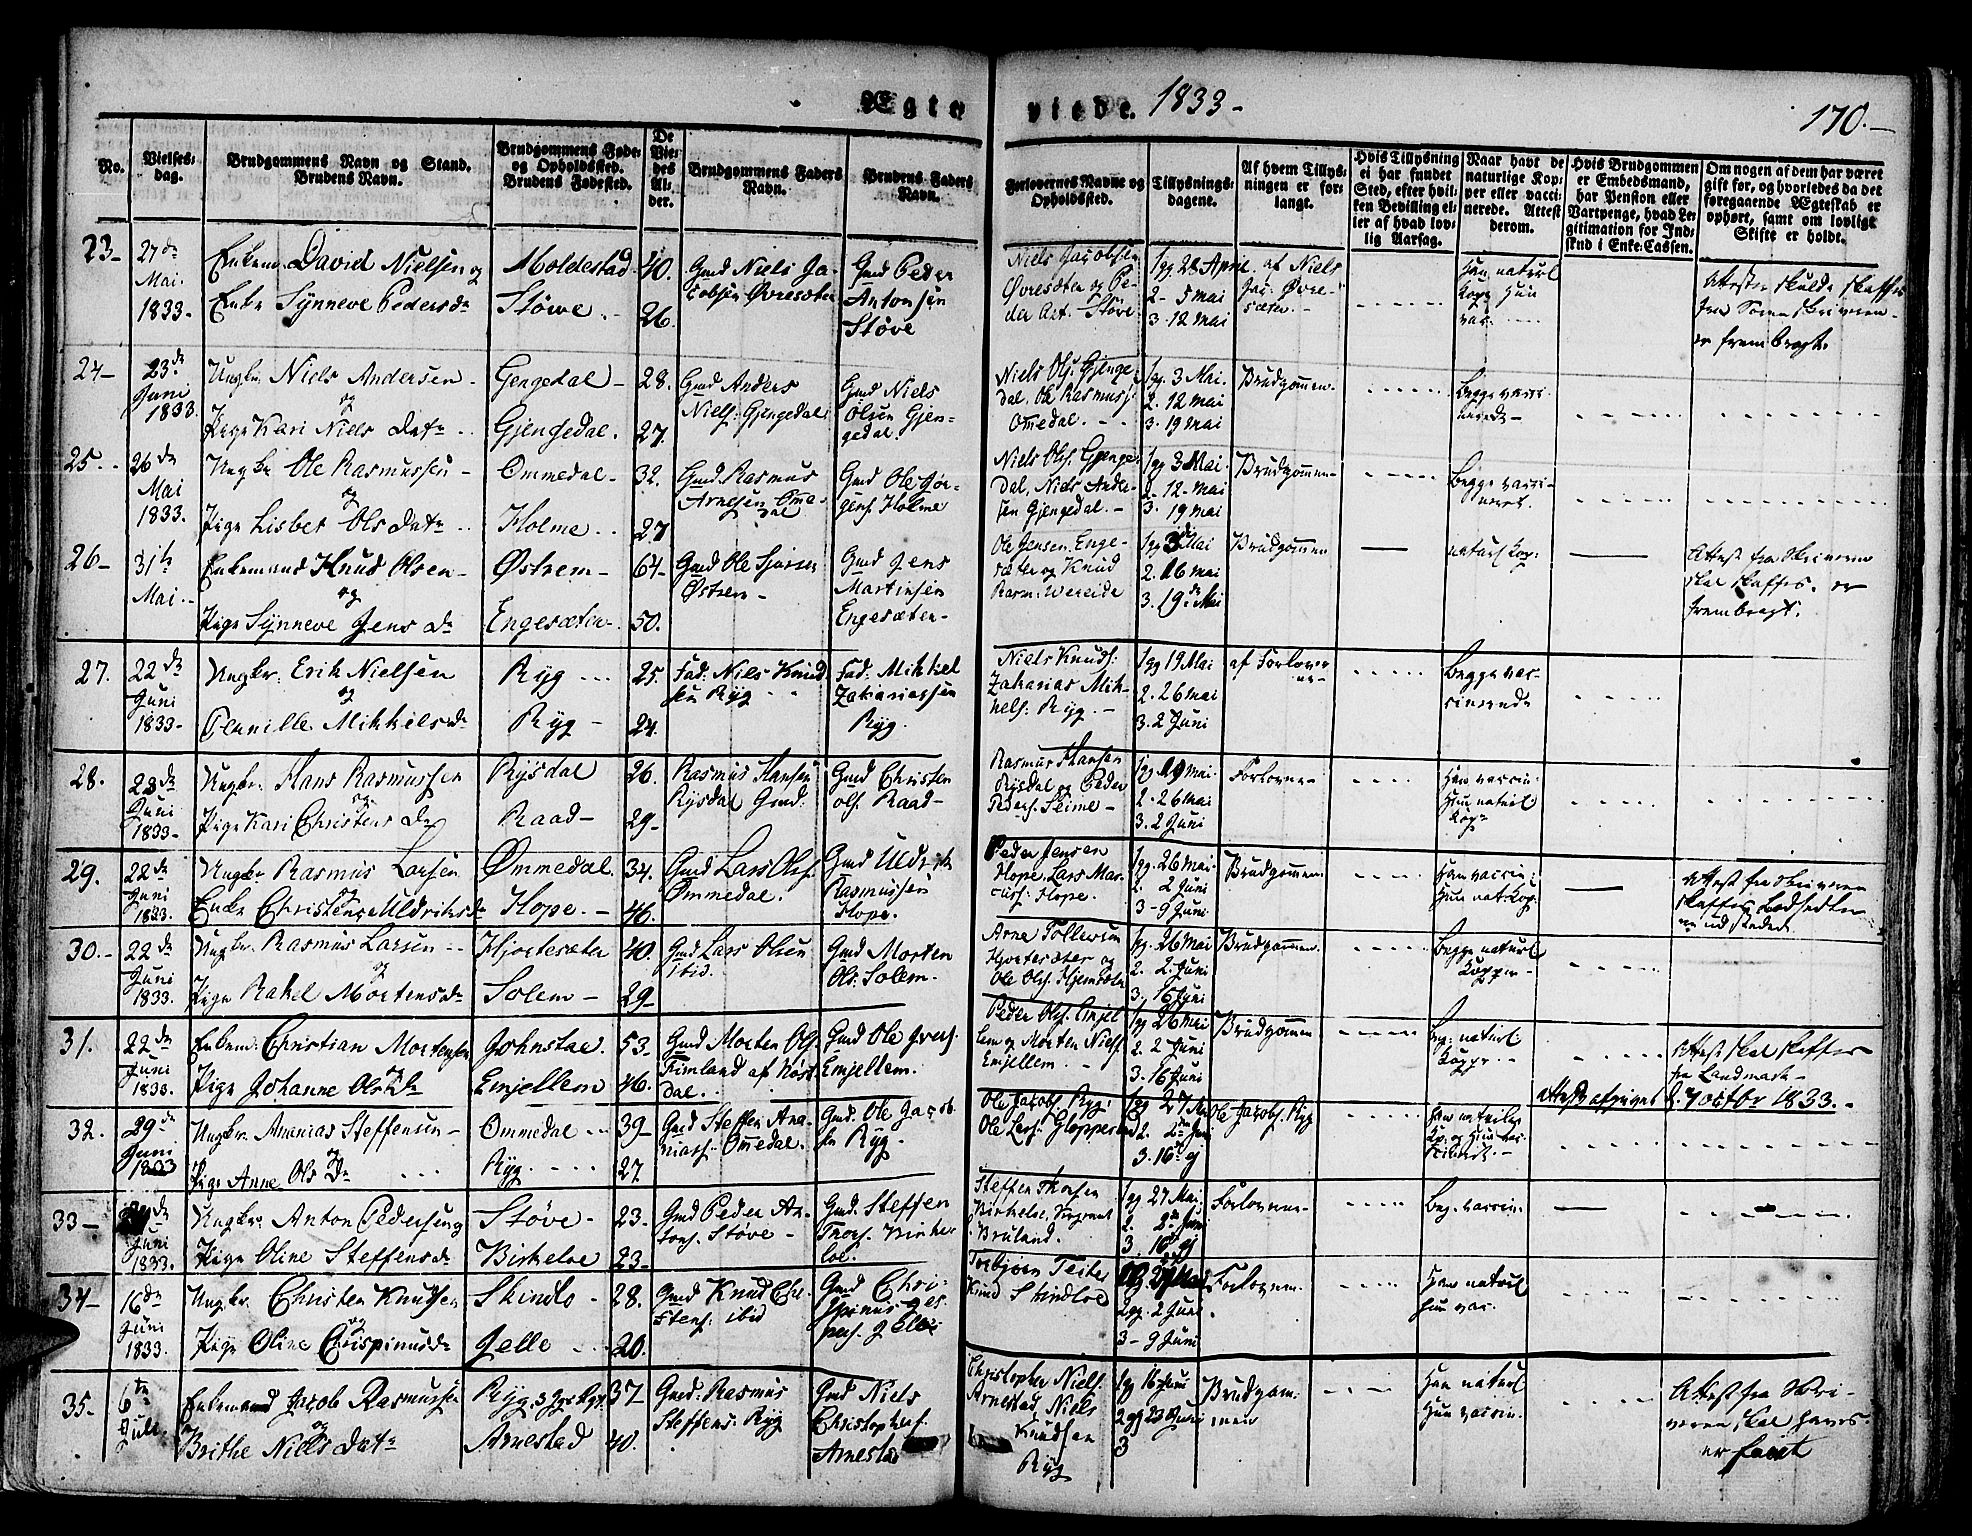 Ægte viede. 1833-
170.-
No.
Vielses-
dag.
Brudgommens Navn og Stand.
Brudens Navn.
Brudgommens Føde-
og Opholdssted.
Brudens Fødested.
De
Vie-
des
Al-
der.
Brudgommens Faders
Navn.
Brudens Faders
Navn.
Forlovernes Navne og
Opholdssted.
Tillysnings-
dagene.
Af hvem Tillys-
ningen er for-
langt.
Hvis Tillysning
ei har fundet
Sted, efter hvil-
ken Bevilling el-
ler af hvad lov-
lig Aarsag.
Naar havt de
naturlige Kop-
per eller vacci-
nerede. Attest
derom.
Hvis Brudgommen
er Embedsmand,
har Pension eller
Vartpenge, hvad Le-
gitimation for Ind-
skud i Enke-Cassen.
Om nogen af dem har været
gift før, og hvorledes da det
foregaaende Ægteskab er
ophørt, samt om lovligt
Skifte er holdt.
23-
27de
Mai.
1833.
Enkem. David Nielsen og
Enke Synneve Pedersdr
Moldestad
Støwe
40.
26.
Gmd Niels Ja-
cobsen Øvresæter
Gmd Peder
Antonsen
Støve
Niels Jacobsen
Øvresæten og Pe-
der Ant. Støve
1gg 28 April
2- 5 mai
3. 12 mai
af Niels
Jac. Øvre-
sæter
Han naturl
Kopp Hun
vac.
Attester skulde skaffes
fra Sorenskriveren
er frembragt.
24-
23de
Juni
1833.
Ungkr. Niels Andersen
og
Pige Kari Niels Datr
Gengedal-
Gjengedal.
28.
27.
Gmd Anders
Niels. Gjengedal
Gmd Niels
Olsen Gjen-
gedal.
Niels Ols. Gjenge-
dal, Ole Rasmus.
Omedal.
1gg. 3 Mai.
2. 12 mai
3. 19 mai
Brudgommen
Begge vacci-
nerede
25.
26de
Mai
1833.
Ungkr Ole Rasmussen
og
Pige Lisbet Ols Datr
Ommedal-
Holme
32.
27
Gmd Rasmus
Arnesen Ome-
dal
Gmd Ole Jør-
gens. Holme
Niels Ols. Gjenge-
dal, Niels Ander-
sen Gjengedal.
1gg 3 Mai
2- 12- mai
3. 19 mai
Brudgommen
Begge vacci-
neret.
26-
31te
Mai.
Enkemand Knud Olsen
og
Pige Synneve Jens Dr
Østrem-
Engesætter
64-
50.
Gmd Ole Sjursen
Østrem
Gmd Jens
Martinsen
Engesæter
Ole Jensen Enge-
sæter og Knud
Rasm. Wereide
1gg 3 Mai
2. 16 mai
3. 19de Mai
Brudgommen
naturl. Kop.
Attest fra Skriveren
skal skaffes. er
frembragt.
27.
22de
Juni
1833-
Ungkr. Erik Nielsen
og
Pernille Mikkelsdr
Ryg
Ryg
25.
24.
Fad. Niels Knud
sen Ryg
Fad. Mikkel
Zakariassen
Ryg.
Niels Knuds.
Zakarias Mik-
kels. Ryg.
1gg 19 Mai
2. 26 mai
3. 2 Juni
af Forlover
ne
Begge vac-
cinerede
28.
23de
Juni
1833-
Ungkr. Hans Rasmussen
og
Pige Kari Christens Dr
Rysdal
Raad-
26.
29-
Rasmus Hansen
Rysdal Gmd.
Gmd Christen
Ols. Raad-
Rasmus Hansen
Rysdal og Peder
Peders. Seime
1gg 19 Mai.
2. 26 mai
3. 2 Juni
Forloverne
Han vaccin.
Hun naturl
Kop.
29.
22de
Juni
1833.
Ungkr. Rasmus Larsen
og
Enke Christense Uldriksdr
Ommedal
Hope.
34.
46.
Gmd Lars Ols.
Ommedal.
Gmd Uldrik
Rasmussen
Hope.
Peder Jensen
Hope. Lars Mar-
cus. Hope.
1gg. 26 mai
2. 2 Juni
3- 9 Juni
Brudgommen
Han vaccin.
Hun nat. Kop.
Attest fra Skriveren
skaffes
30.-
22de
Juni
1833.
Ungkr. Rasmus Larsen
og
Pige Rakel Mortensdr
Hjortesæter
Solem-
40.
29-
Gmd Lars Olsen
ibid.
Gmd Morten
Ols. Solem.
Arne Tollevsen
Hjortesæter og
Ole Ols. Hjemsæter
1gg. 26 Mai
2. 2. Juni
3. 16 Juni
Brudgommen
Begge naturl
Kopper
31.
22de
Juni
1833.
Enkem. Christian Mortensen
og
Pige Johanne Ols Dr
Johnstad.
Emjellem
53-
46.
Gmd Morten Ols.
Fimland af Høst
dal.
Gmd Ole Ivers.
Emjellem.
Peder Ols. Emjel
lem og Morten Niels.
Emjellem.
1gg 26 mai
2. 2 Juni
3. 16 Juni
Brudgommen
Beg. naturl.
Kopper
Attest skal skaffes
fra Landmark
Attest afgives d. 7 octbr 1833.-
32.
29de
Juni
1833
Ungkr. Ananias Steffensen
og
Pige Anne Ols Dr
Ommedal
Ryg.
39-
27
Gmd Steffen Ana-
nias. Omedal.
Gmd. Ole Jacob-
sen Ryg.
Ole Jacobs. Ryg,
Ole Lars. Gloppestad
1gg 27 Mai
2. 2de Juni
3. 16 dj
Ole Jacobs. Ryg
Han naturlige
Kop. og Hun vac-
cineret.
33-
Juni
1833.
Ungkr. Anton Pedersen og
Pige Oline Steffensdr
Støve-
Birkeloe
23-
23-
Gmd Peder An-
tons. Støve-
Gmd. Steffen
Thors. Birke-
loe.
Steffen Thorsen
Birkeloe,
Bruland.
1gg 27 Mai.
2. 2de Juni
3. 16 dj
Forloverne
Beg. vaccin.
34-
16de
Juni
1833.
Ungkr. Christen Knudsen
og
Pige Oline Crispinusdr
Skindlo
Jelle
28.
20.
Gmd Knud Chri-
stens. ibid
Gmd Chri-
spinus Jes-
pers. Jelle
Torbjørn Teite
Knud Skindloe
2gg. 2 Juni
3- 9 Juni
Forloverne
Han naturl
Hun vac.
35-
6te
Juli.
Enkemand Jacob Rasmussen
og
Brithe Niels Datr
Ryg
Arnestad
37-
40.
Gmd. Rasmus
Steffens. Ryg
Gmd Niels
Christophers.
Arnestad
Christopher Niels.
Arnestad, Niels
Knudsen
Ryg
1gg 16 Juni
2gg 23 Juni
3
Brudgom-
men
Han naturl
Hun vaccin.
Attest fra Skri-
veren skal haves
er faaet